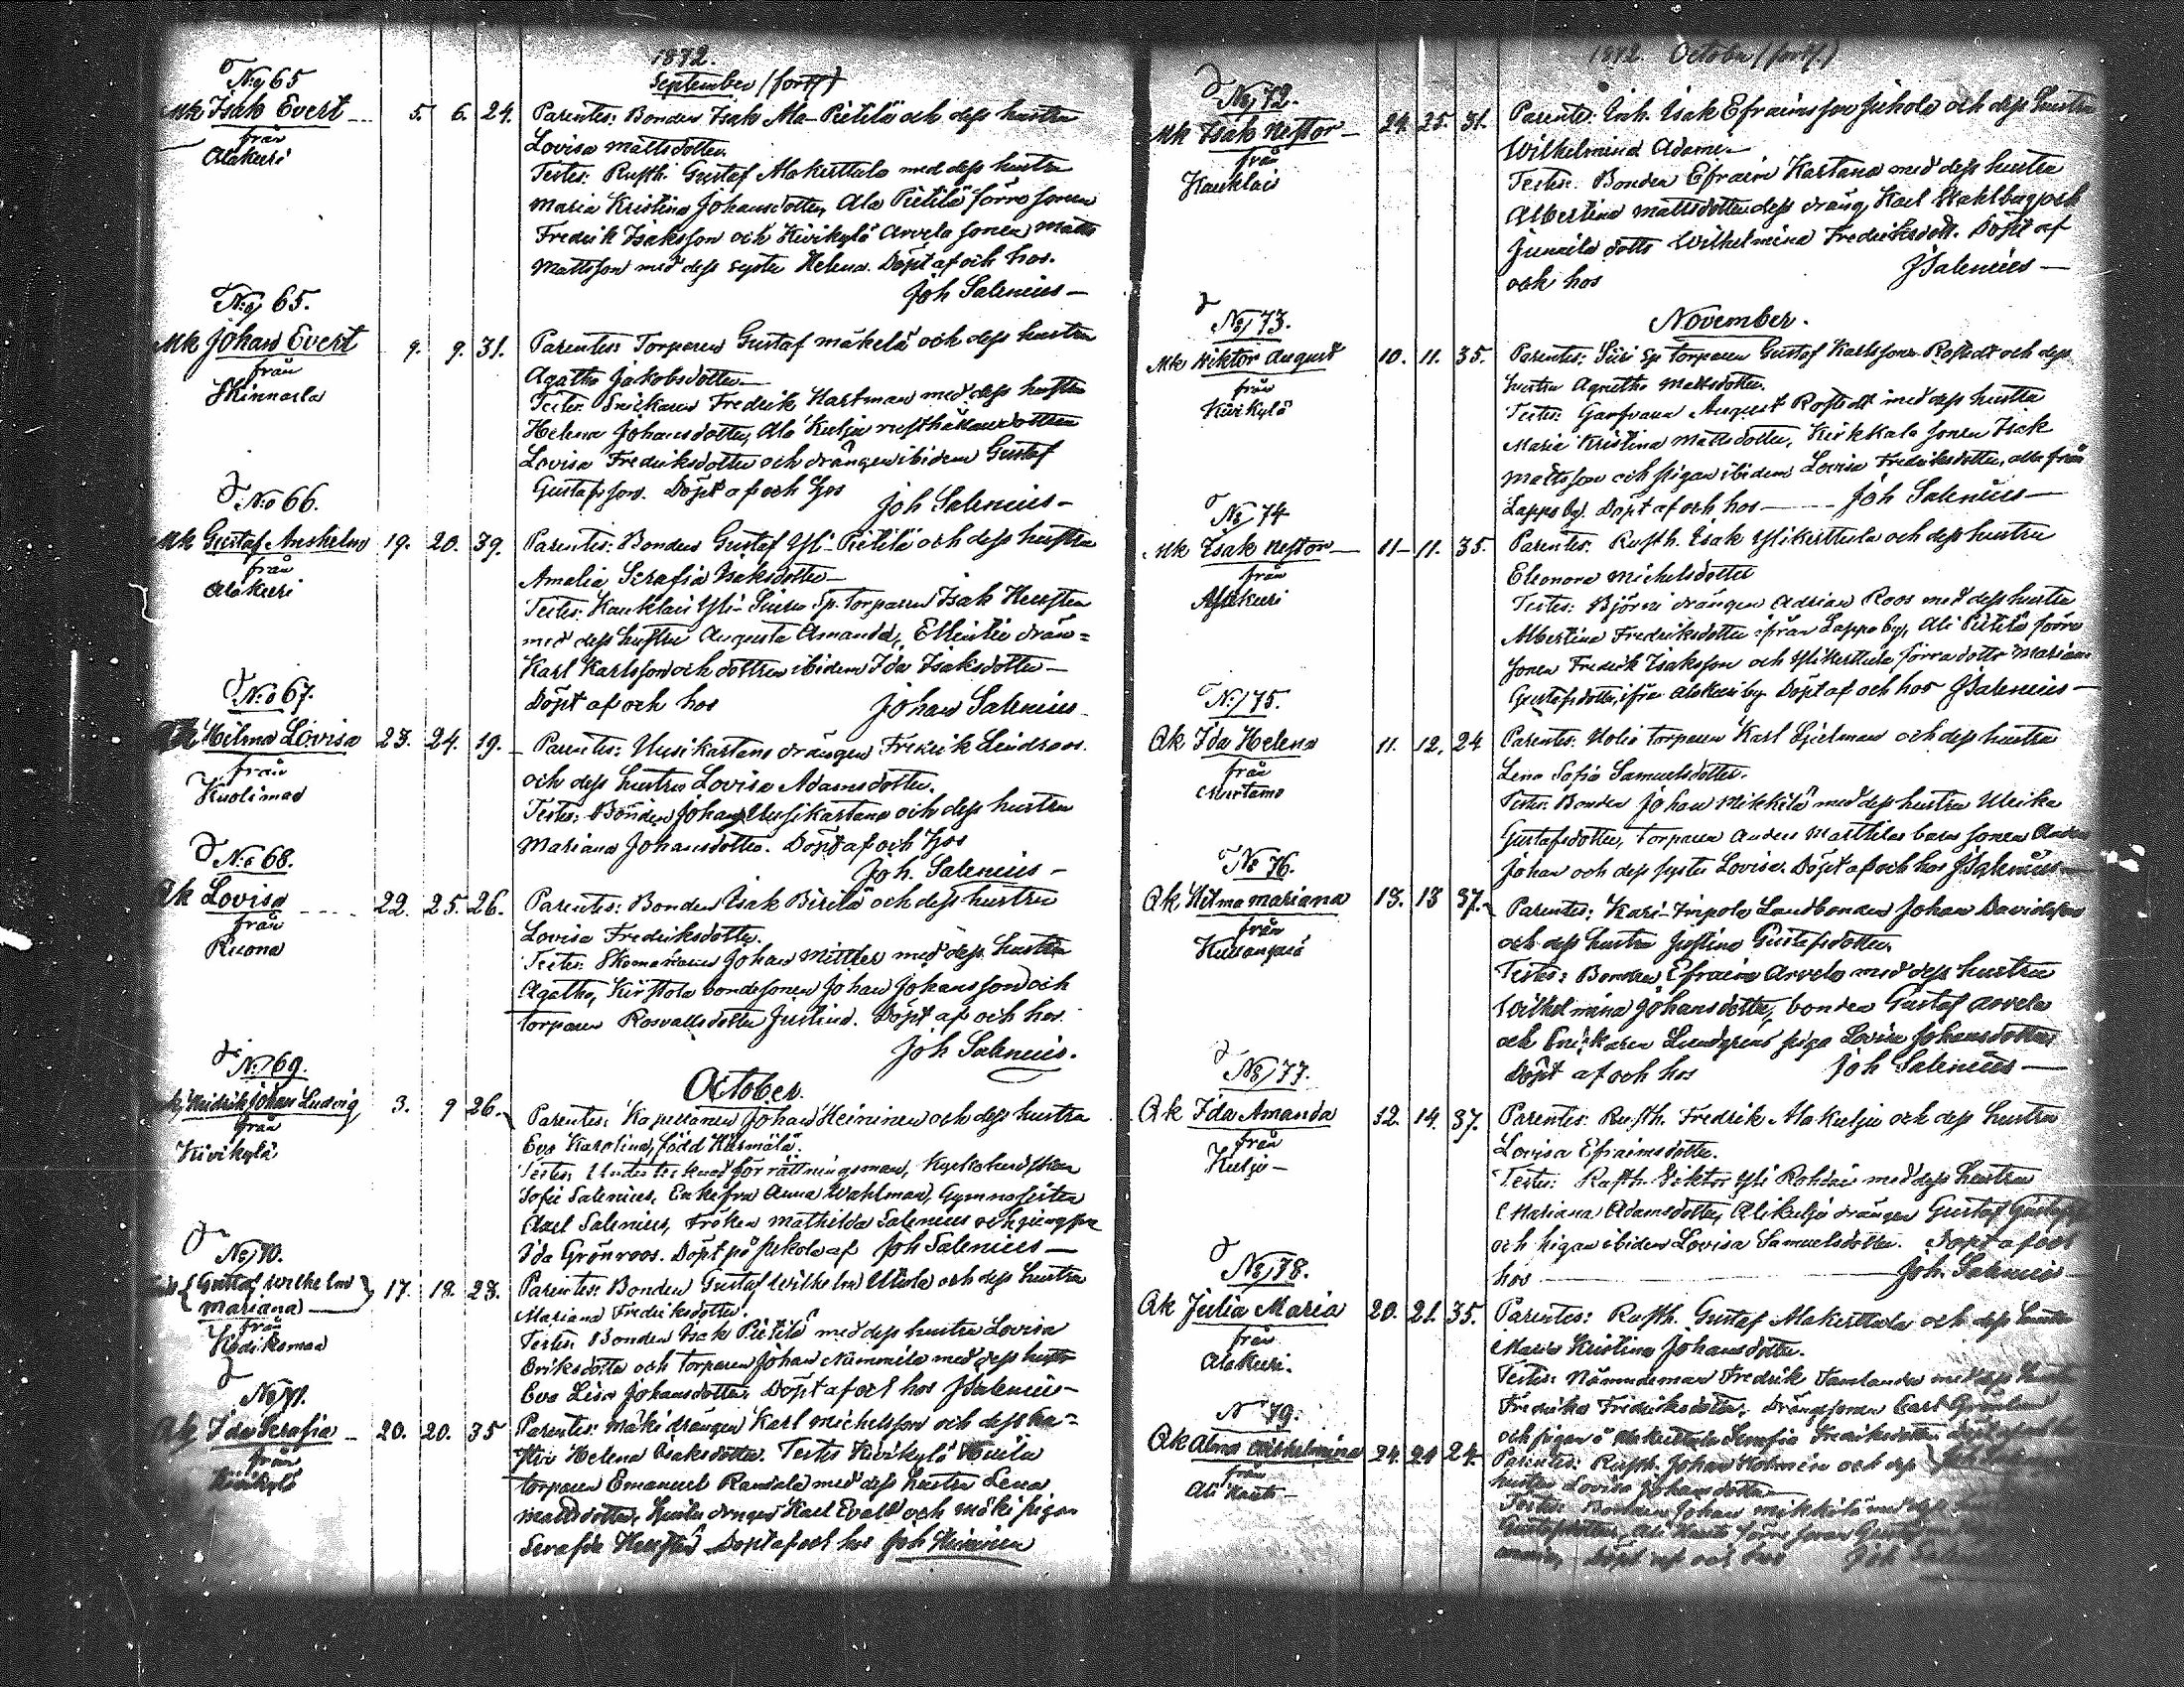 1872.
September (forts)
No 65
Mk Isak Evert 5. 6. 24.
från
Alakuri
Parentes: Bonden Isak Ala-Pietilä och dess hustru
Lovisa Mattsdotter.
Testes: Rusth. Gustaf Alakerttula med dess hustru
Maria Kristina Johansdotter, Ala Pietilä förre sonen
Fredrik Isaksson och Kivikylä Arvela sonen Matts
Mattsson med dess syster Helena. Döpt af och hos.
Joh Salenius
No 65.
Mk Johan Evert 9. 9. 31.
från
Skinnarla
Parentes: Torparen Gustaf Mäkelä och dess hustru
Agatha Jakobsdotter
Testes: Snickaren Fredrik Hartman med dess hustru
Helena Johansdotter, Ala Kulju rusthållaredottren
Lovisa Fredriksdotter och drängen ibidem Gustaf
Gustafsson. Döpt af och hos
Joh Salenius
No 66.
Mk Gustaf Anshelm 19. 20. 39.
från
Alakuri
Parentes: Bonden Gustaf Yli-Pietilä och dess hustru
Amalia Serafia Isaksdotter
Testes: Kauklais Yli- Sp. torparen Isak
med dess hustru Augusta Amanda, drän=
Karl Karlsson och dottren ibidem Ida Isaksdotter
Döpt af och hos Johan Salenius
No 67.
Hilma Lovisa 23. 24. 19.
från
Kuolimaa
Parentes: Uusikartano drängen Fredrik Lindroos.
och dess hustru Lovisa Adamsdotter.
Testes: Bonden Johan Uusikartano och dess hustru
Mariana Johansdotter. Döpt af och hos
Joh. Salenius
No 68.
Qk Lovisa 22. 25. 26.
från
Ruona
Parentes: Bonden Isak Birilä och dess hustru
Lovisa Fredriksdotter.
Testes: Skomakaren Johan Mittler med dess hustru
Agatha, bondesonen Johan Johansson och
torparen Rosvallsdotter Justina. Döpt af och hos
Joh Salenius.
October.
No 69.
Fridrik Johan Ludvig 3. 9 26.
från
Kivikylä
Parentes: Kapellanen Johan Heininen och dess hustru
Eva Karolina, född Härmälä.
Testes: Undertecknad förrättningsman, Kyrkoherdskan
Sofie Salenius, Enkefru Anna Wahlman, Gymnasisten
Axel Salenius, fröken Mathilda Salenius och jungfru
Ida Grönroos. Döpt på af Joh Salenius
No 70.
Gustaf Wilhelm
Mariana 17. 18. 23.
från
Kodiksmaa
Parentes: Bonden Gustaf Wilhelm och dess hustru
Mariana Fredriksdotter.
Testes: Bonden Isak Pietilä med dess hustru Lovisa
Eriksdotter och torparen Johan Nummila med dess hustru
Eva Lisa Johansdotter. Döpt af och hos J Salenius
No 71.
Qk Ida Serafia 20. 20. 35
från
Kivikylä
Parentes: Mäki drängen Karl Michelsson och dess hu=
stru Helena Isaksdotter. Testes Kivikylä
torparen Emanuel Randala med dess hustru Lena
Mattsdotter, drängen Karl Evald och Mäki pigan
Serafia Döpt af och hos Joh Heininen
1872. October (forts.)
No 72.
Mk Isak Nestor 24. 25. 31.
från
Kauklais
Parentes: Inh. Isak Efraimsson och dess hustru
Wilhelmina Adams
Testes: Bonden Efraim Kartano med dess hustru
Albertina Mattsdotter dess dräng Karl Stahlberg och
Junnila dottr Wilhelmina Fredriksdott. Döpt af
och hos J Salenius
November.
No 73.
Mk Wiktor August 10. 11. 35.
från
Kivikylä
Parentes: sp torparen Gustaf Karlsson Rostedt och dess
hustru Agnetha Mattsdotter.
Testes: Garfvaren August Rostedt med dess hustru
Maria Kristina Mattsdotter, Kirkkala sonen Isak
Mattsson och pigan ibidem Lovisa Fredriksdotter, alla från
Lappo by. Döpt af och hos Joh Salenius
No 74
Mk Isak Nestor 11 11. 35.
från
Alakuri
Parentes: Rusth. Isak Ylikerttula och dess hustru
Eleonora Michelsdotter
Testes: Björni drängen Adrian Roos med dess hustru
Albertina Fredriksdotter ifrån Lappo by, Ali Pietilä förre
sonen Fredrik Isaksson och Ylikerttula förra dottr Mariana
Gustafsdotter, ifrån Alakuri by. Döpt af och hos J Salenius
No 75.
Qk Ida Helena 11. 12. 24
från
Murtamo
Parentes: torparen Karl och dess hustru
Lena Sofia Samuelsdotter.
Testes: Bonden Johan Mikkilä med dess hustru Ulrika
Gustafsdotter, torparen Anders Marttilas barn sonen
Johan och dess syster Lovisa. Döpt af och hos J Salenius
No 76.
Qk Hilma Mariana 13. 13 37.
från
Kuusanpää
Parentes: Kari-Impola Landbonden Johan Davidsson
och dess hustru Justina Gustafsdotter.
Testes: Bonden Efraim Arvela med dess hustru
Wilhelmina Johansdotter, bonden Gustaf Arvela
och Snickaren Lundgrens piga Lovisa Johansdotter
Döpt af och hos Joh Salenius
No 77.
Qk Ida Amanda 12. 14. 37.
från
Kulju
Parentes: Rusth. Fredrik Ala Kulju och dess hustru
Lovisa Efraimsdotter.
Testes: Rusth. Viktor Yli Rohdai med dess hustru
Mariana Adamsdotter, Alikulju drängen Gustaf
och pigan ibidem Lovisa Samuelsdotter. Döpt af och
hos Joh. Salenius
No 78.
Qk Julia Maria 20. 21. 35.
från
Alakuri.
Parentes: Rusth. Gustaf Alakerttula och dess hustru
Maria Kristina Johansdotter.
Testes: Nämndeman Fredrik med dess
Fredrika Fredriksdotter, drängsonen Carl
och pigan å Alakerttula Serafia Fredriksdotter. Döpt af och
No 79.
Qk Alma Wilhelmina 24. 24 24.
från
Ali
Parentes: Rusth. Johan och dess
hustru Lovisa Johansdotter
Testes: Bonden Johan Mikkilä med dess
Gustafsdotter, Ali förre sonen
Döpt af och hos Joh